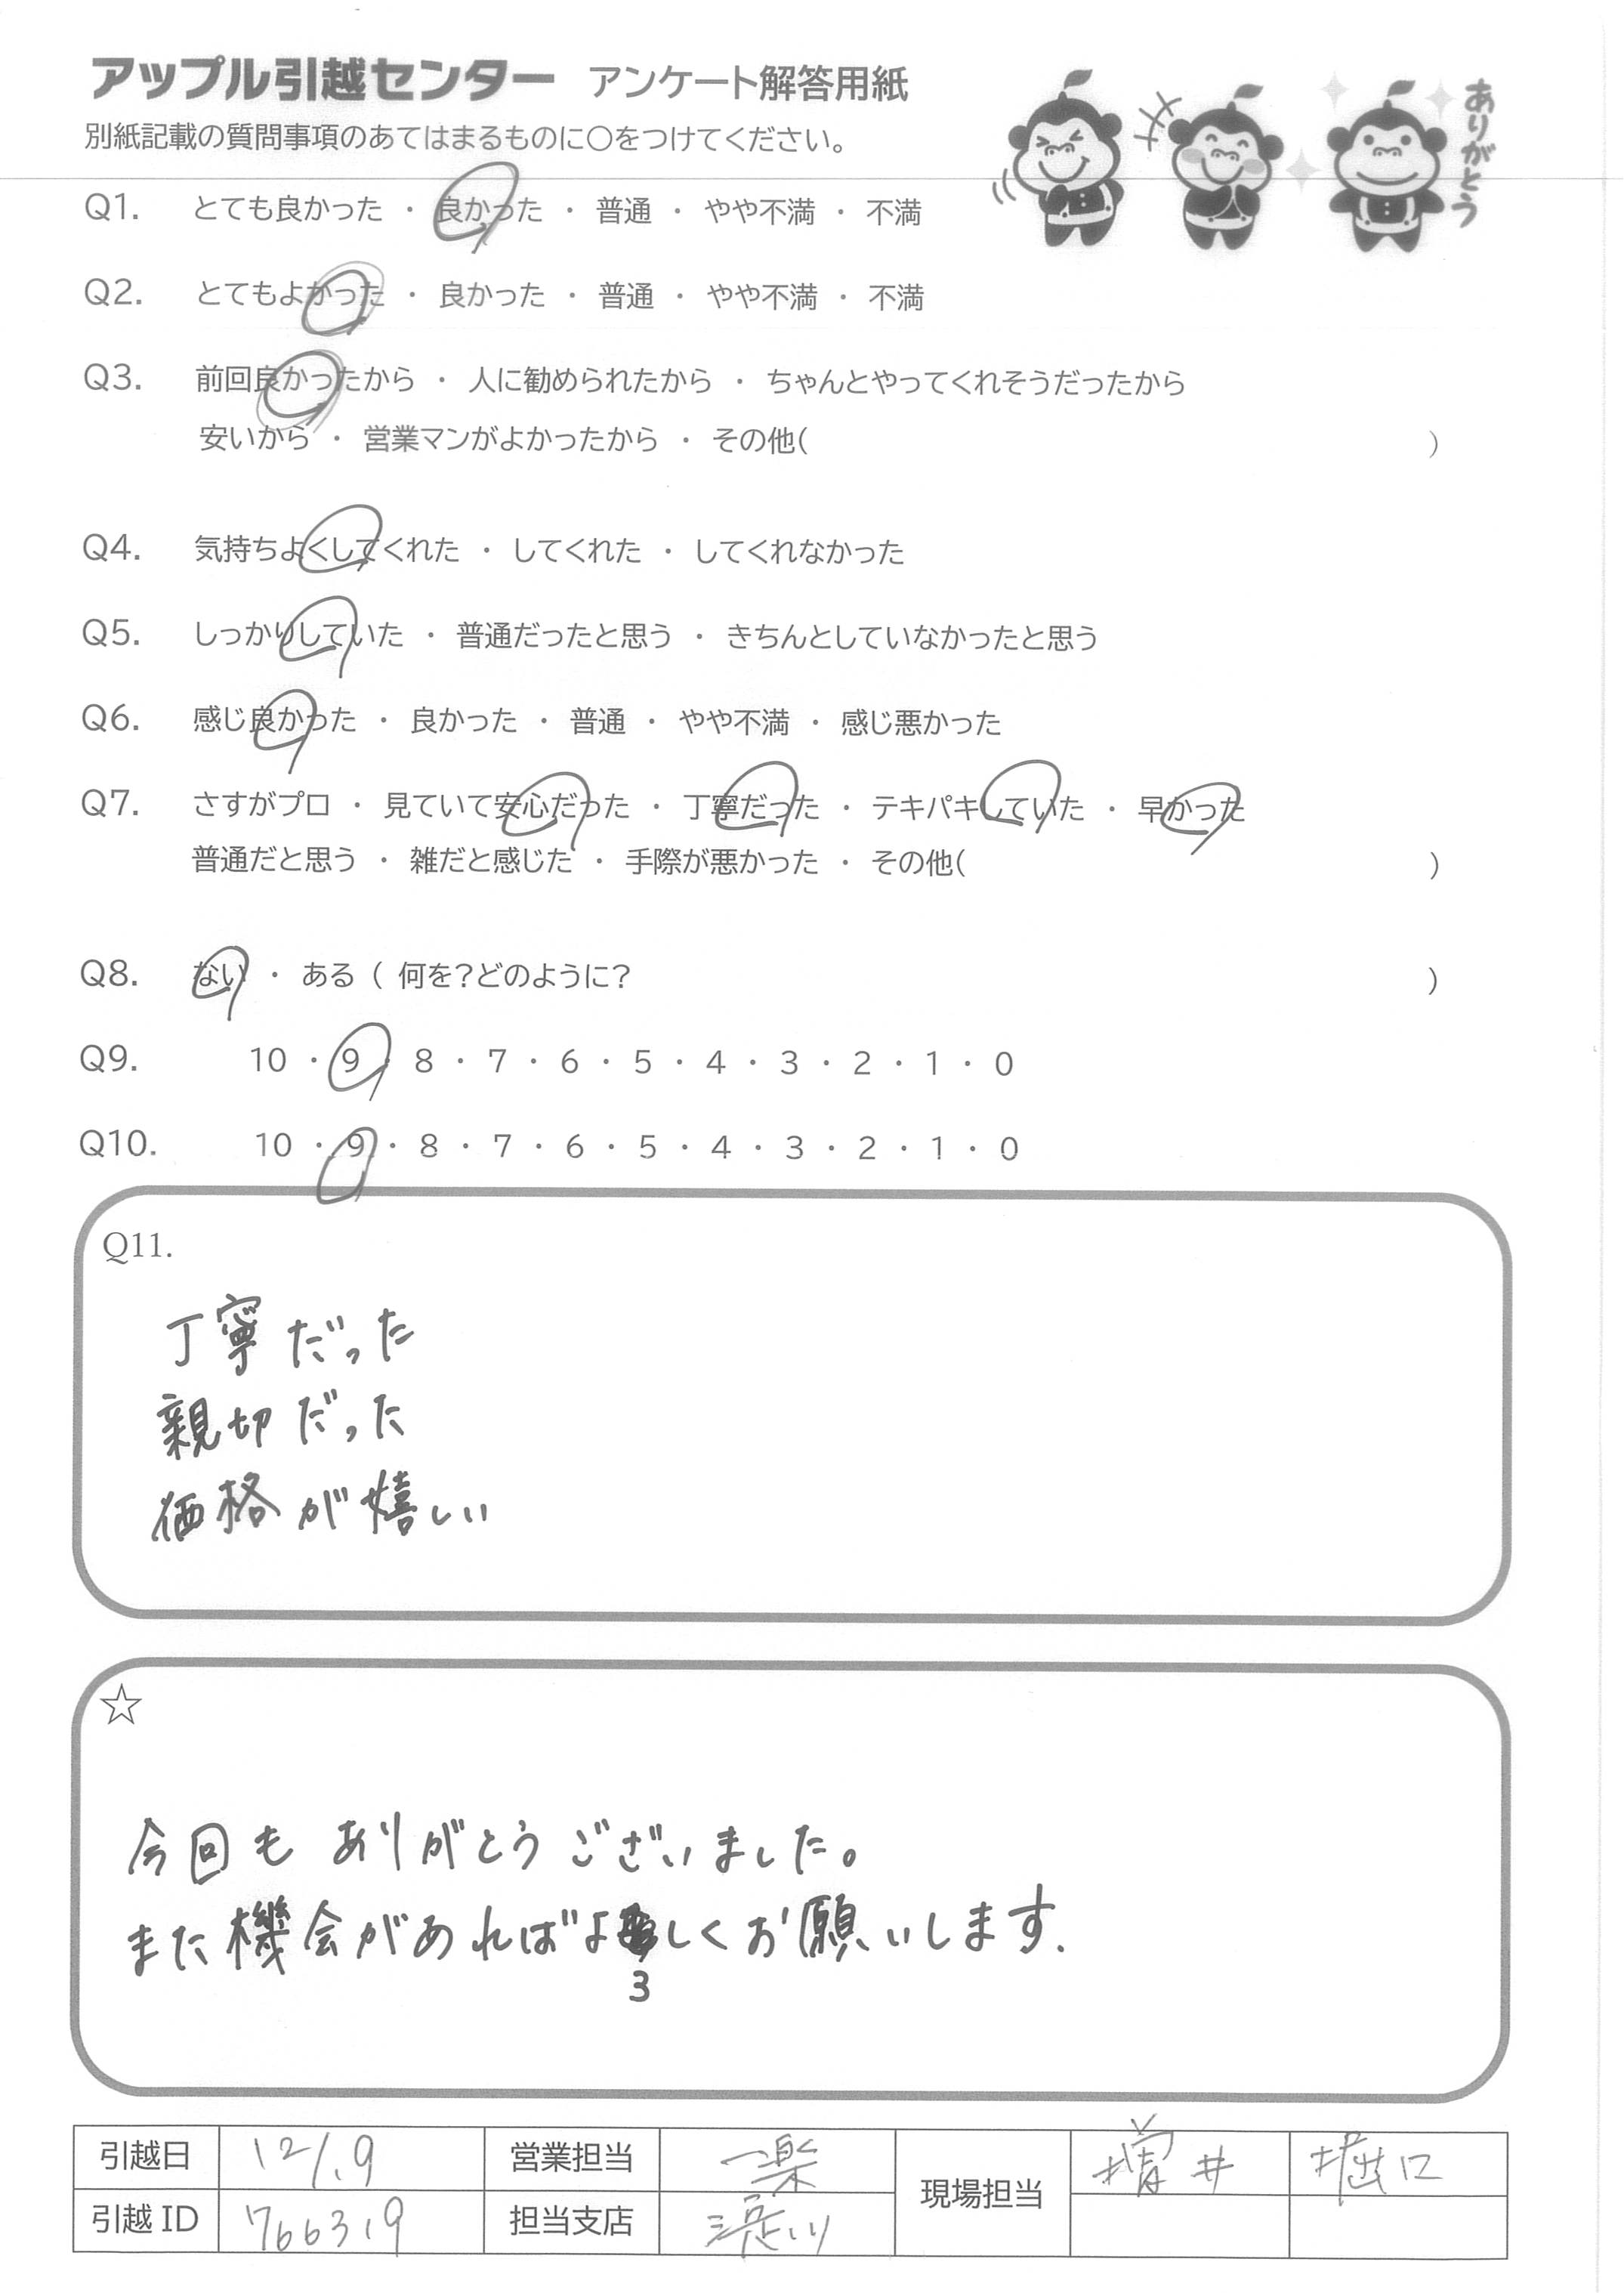 アップル引越センター アンケート解答用紙
別紙記載の質問事項のあてはまるものに○をつけてください。
ありがとう
Q1. とても良かった ・ 良かった ・ 普通 ・ やや不満 ・ 不満
Q2. とてもよかった ・ 良かった ・ 普通 ・ やや不満 ・ 不満
Q3. 前回良かったから ・ 人に勧められたから ・ ちゃんとやってくれそうだったから
安いから ・ 営業マンがよかったから ・ その他( )
Q4. 気持ちよくしてくれた ・ してくれた ・ してくれなかった
Q5. しっかりしていた ・ 普通だったと思う ・ きちんとしていなかったと思う
Q6. 感じ良かった ・ 良かった ・ 普通 ・ やや不満 ・ 感じ悪かった
Q7. さすがプロ ・ 見ていて安心だった ・ 丁寧だった ・ テキパキしていた ・ 早かった
普通だと思う ・ 雑だと感じた ・ 手際が悪かった ・ その他( )
Q8. ない ・ ある ( 何を?どのように? )
Q9. 10 ・ 9 ・ 8 ・ 7 ・ 6 ・ 5 ・ 4 ・ 3 ・ 2 ・ 1 ・ 0
Q10. 10 ・ 9 ・ 8 ・ 7 ・ 6 ・ 5 ・ 4 ・ 3 ・ 2 ・ 1 ・ 0
Q11.
丁寧だった
親切だった
価格が嬉しい
☆
今回も ありがとうございました。
また機会があればよろしくお願いします.
引越日 12/.9 営業担当 一楽 現場担当 増井 堀口
引越ID 766319 担当支店